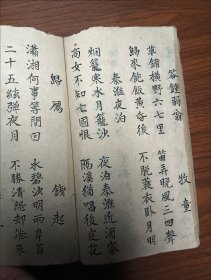 答鍾弱翁 牧童
草鋪横野六七里 笛弄晚風三四聲
歸來飽飯黄昏後 不脱蓑衣卧月明
秦淮夜泊
烟籠寒水月籠沙 夜泊秦淮近酒家
商女不知亡國恨 隔溪猶唱後庭花
歸雁 錢起
瀟湘何事等閒回 水碧沙明两岸苔
二十五絃彈夜月 不勝清怨却飛來